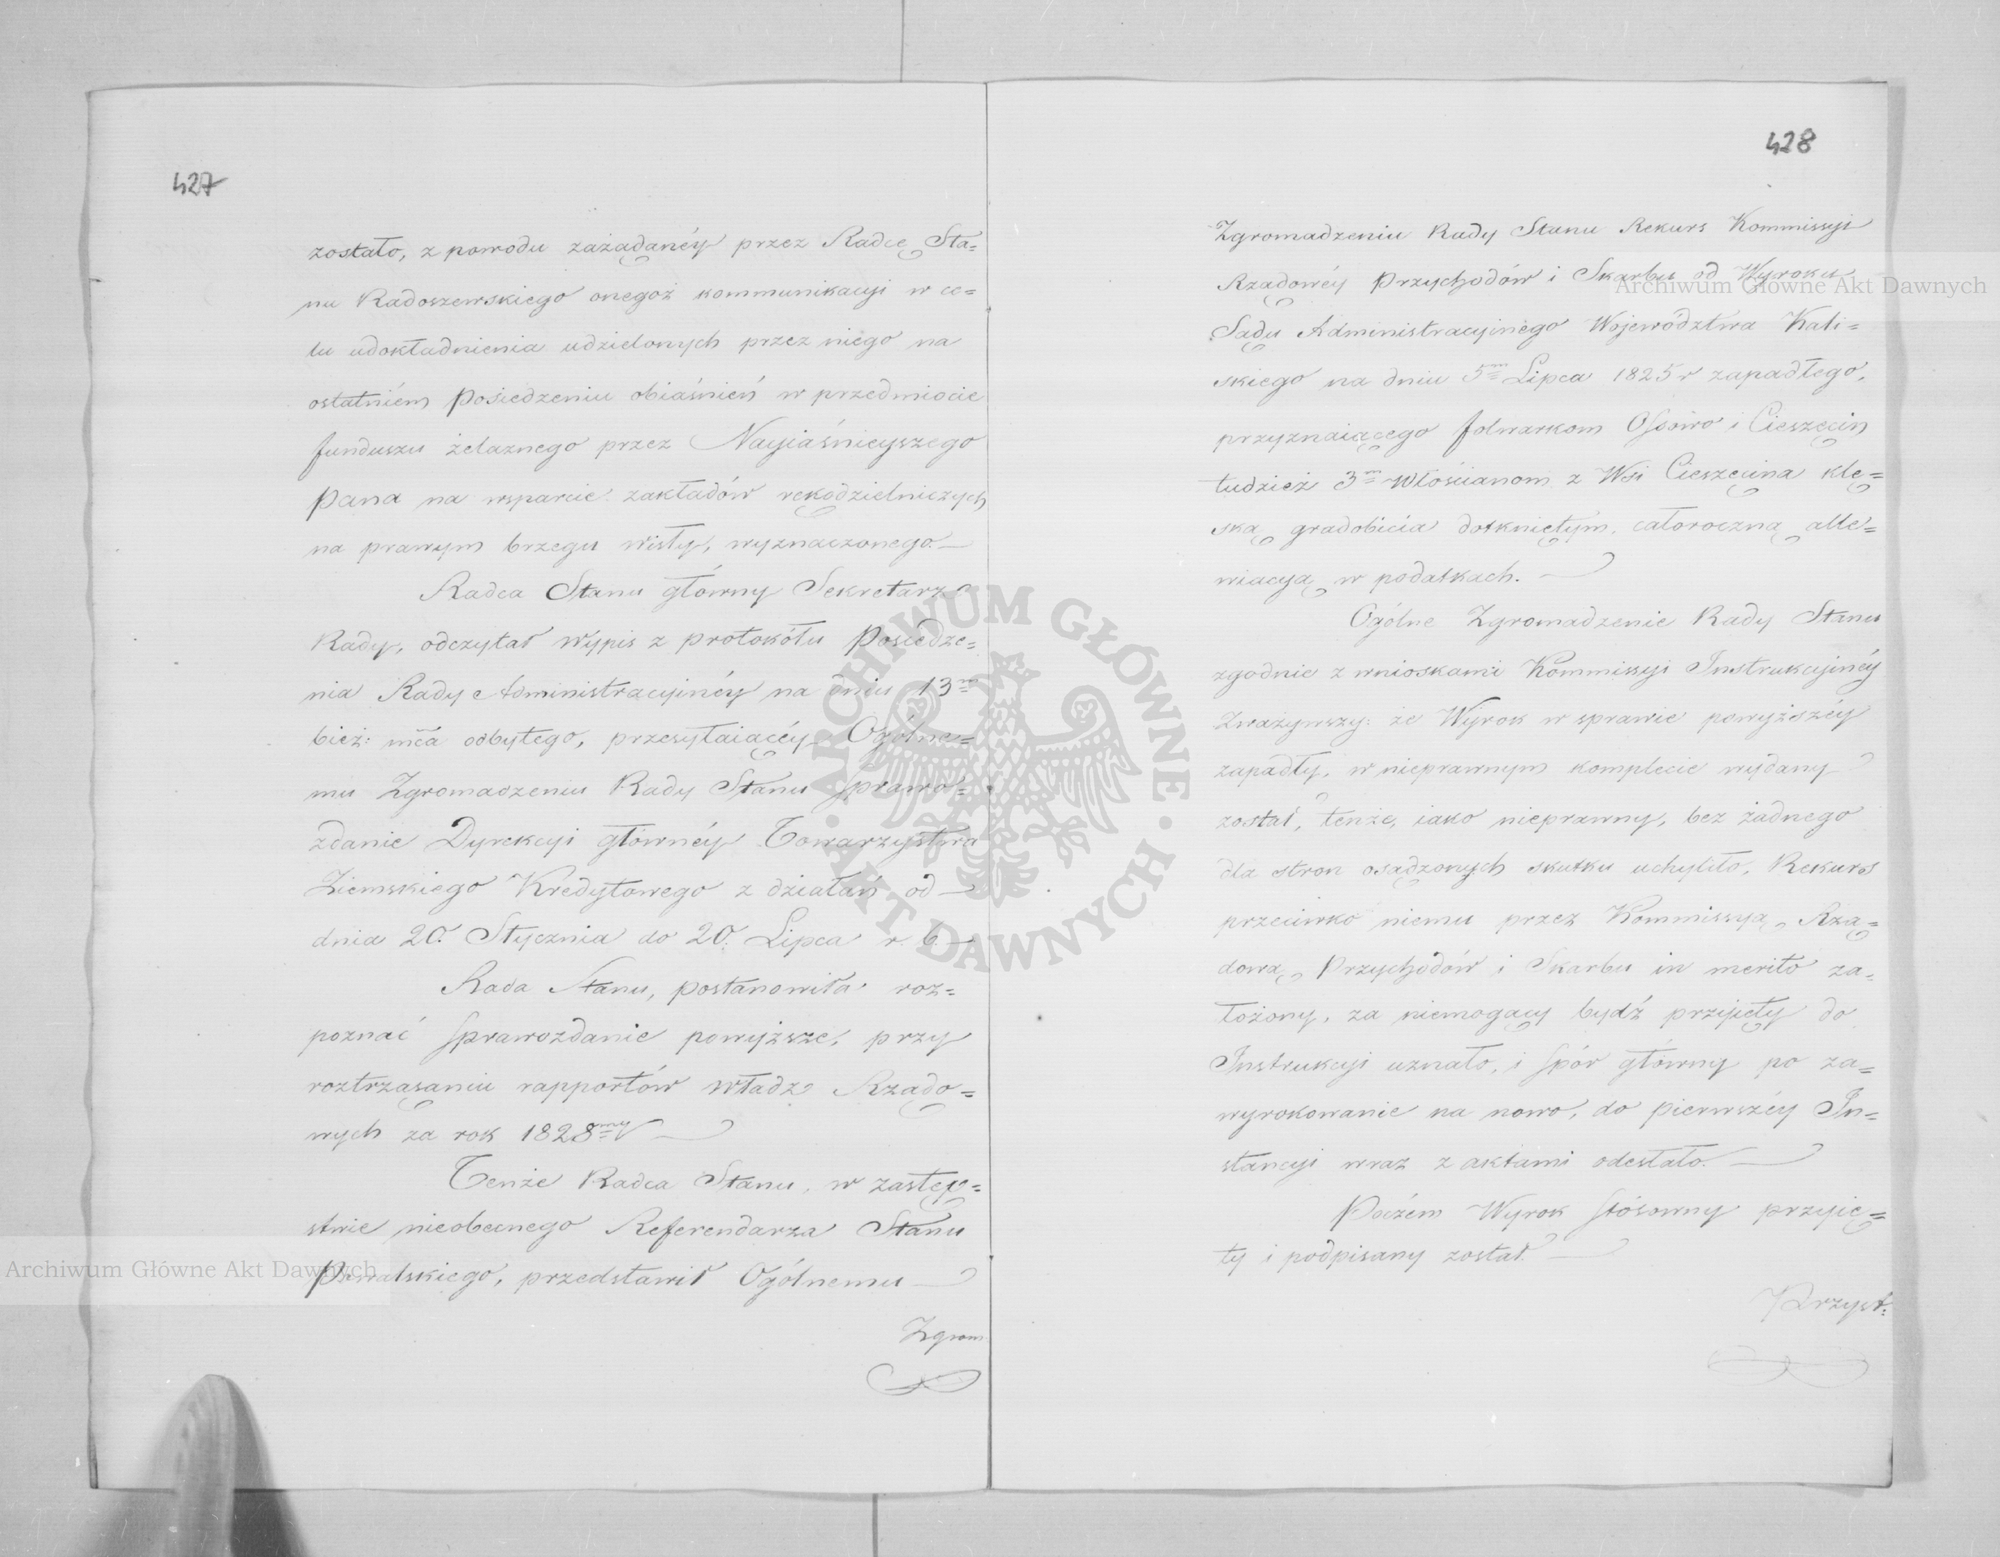 427
zostało, z powodu zażądanéy przez Radcę Sta=
nu Radoszewskiego onegoż kommunikacyi w ce=
lu udokładnienia udzielonych przez niego na
ostatniém Posiedzeniu obiaśnień w przedmiocie
funduszu żelaznego przez Nayiaśnieyszego
Pana na wsparcie zakładów rękodzielniczych
na prawym brzegu Wisły, wyznaczonego.—
Radca Stanu główny Sekretarz
Rady, odczytał Wypis z protokółu Posiedze=
nia Rady Administracyinéy na dniu 13m
bież: mca odbytego, przesyłaiącéy Ogólne=
mu Zgromadzeniu Rady Stanu Sprawo=
zdanie Dyrekcyi głównéy Towarzystwa
Ziemskiego Kredytowego z działań od —
dnia 20. Stycznia do 20. Lipca r. b. —
Rada Stanu, postanowiła roz=
poznać Sprawozdanie powyższe, przy
roztrząsaniu rapportów Władz Rządo=
wych za rok 1828my —
Tenże Radca Stanu, w zastęp=
stwie nieobecnego Referendarza Stanu
przedstawił Ogólnemu —
Zgrom
428
Zgromadzeniu Rady Stanu Rekurs Kommissyi
Rządowéy Przychodów i Skarbu od Wyroku
Sądu Administracyinego Województwa Kali=
skiego na dniu 5m Lipca 1825 r zapadłego,
przyznaiącego folwarkom Ossowo i Cieszęcin
tudzież 3m Włościanom z Wsi Cieszęcina klę=
ską gradobicia dotkniętym, całoroczną alle=
wiacyą w podatkach. —
Ogólne Zgromadzenie Rady Stanu
zgodnie z wnioskami Kommissyi Instrukcyinéy
Zważywszy: że Wyrok w sprawie powyższéy
zapadły, w nieprawnym komplecie wydany
został, tenże, iako nieprawny, bez żadnego
dla stron osądzonych skutku uchyliło, Rekurs
przeciwko niemu przez Kommissyą Rzą=
dową Przychodów i Skarbu in merito za=
łożony, za niemogący bydź przyięty do
Instrukcyi uznało, i Spór główny po za=
wyrokowanie na nowo, do pierwszéy In=
stancyi wraz z aktami odesłało. —
Poczém Wyrok stósowny przyię=
ty i podpisany został. —
Przyst:
Archiwum Główne Akt Dawnych
Archiwum Główne Akt Dawnych
ARCHIWUM GŁÓWNE · AKT DAWNYCH ·